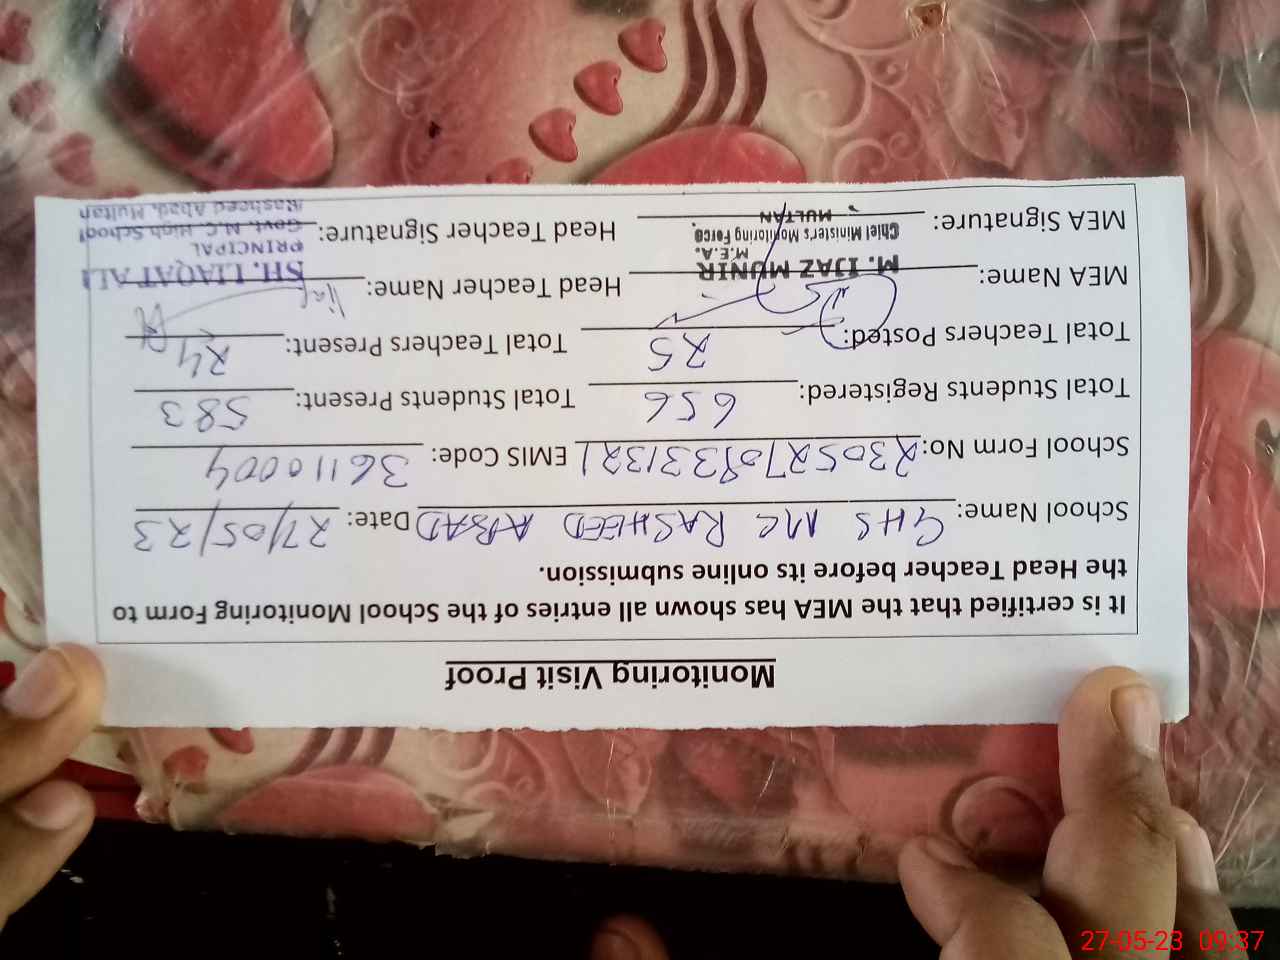 Monitoring Visit Proof
It is certified that the MEA has shown all entries of the School Monitoring Form to
the Head Teacher before its online submission.
School Name: GHS MC RASHEED ABAD Date: 27/05/23
School Form No: EMIS Code: 36110004
Total Students Registered: 656 Total Students Present: 583
Total Teachers Posted: 25 Total Teachers Present: 24
MEA Name: M. IJAZ MUNIR Head Teacher Name: SH. LIAQAT ALI
M.E.A. PRINCIPAL
Chief Minister's Monitoring Force. Govt. M.C. High School
MEA Signature: MULTAN Head Teacher Signature: Rasheed Abad, Multan
27-05-23 09:37